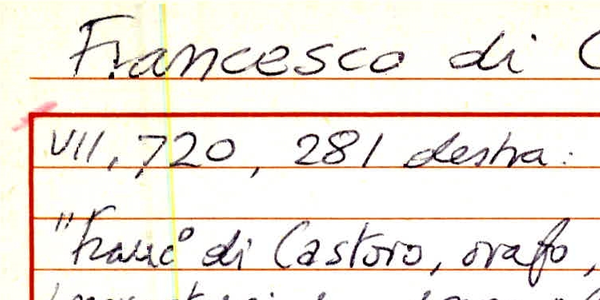 Francesco di C
VII, 720, 281 destra:
"Franc° di Castoro, orafo,